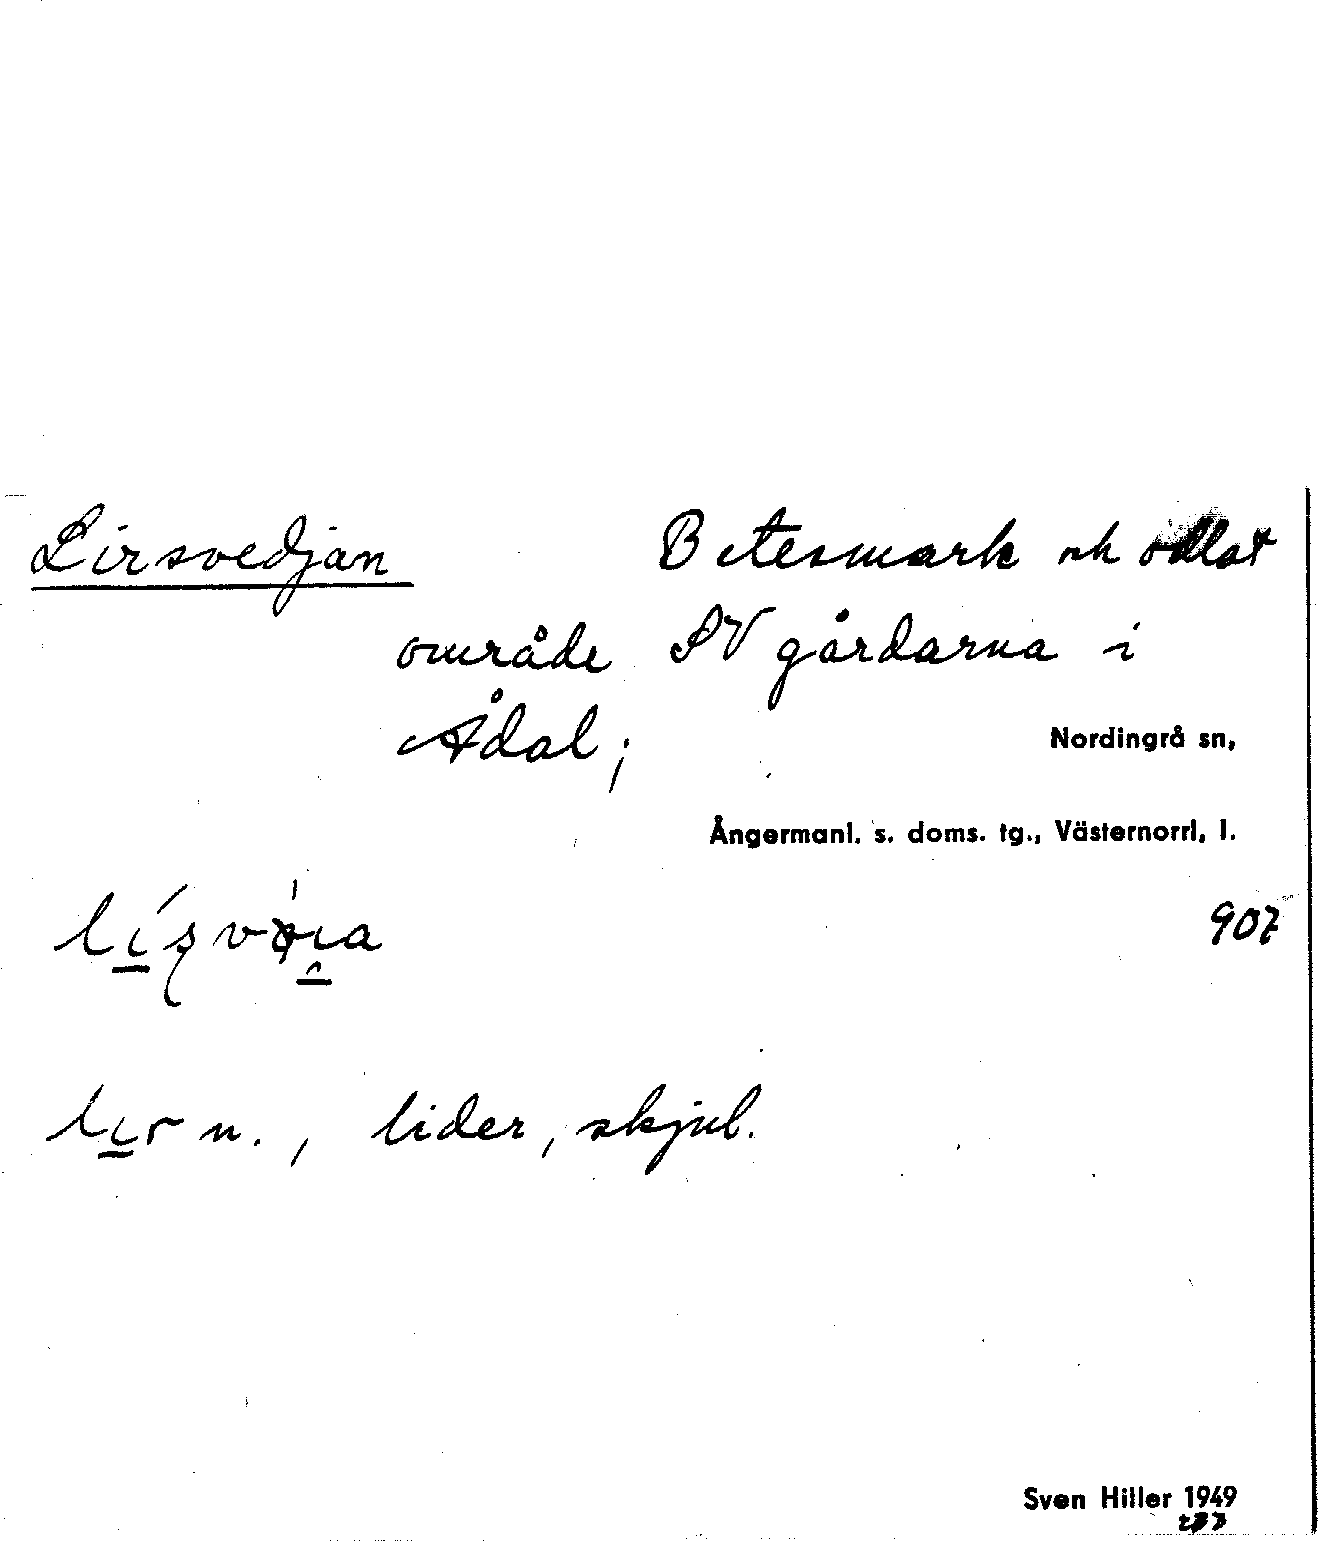 Lirsvedjan Betesmark och odlat
område SV gårdarna i
Ådal; Nordingrå sn,
Ångermanl. s. doms. tg., Västernorrl. l.
907
lir n., lider, skjul.
Sven Hiller 1949